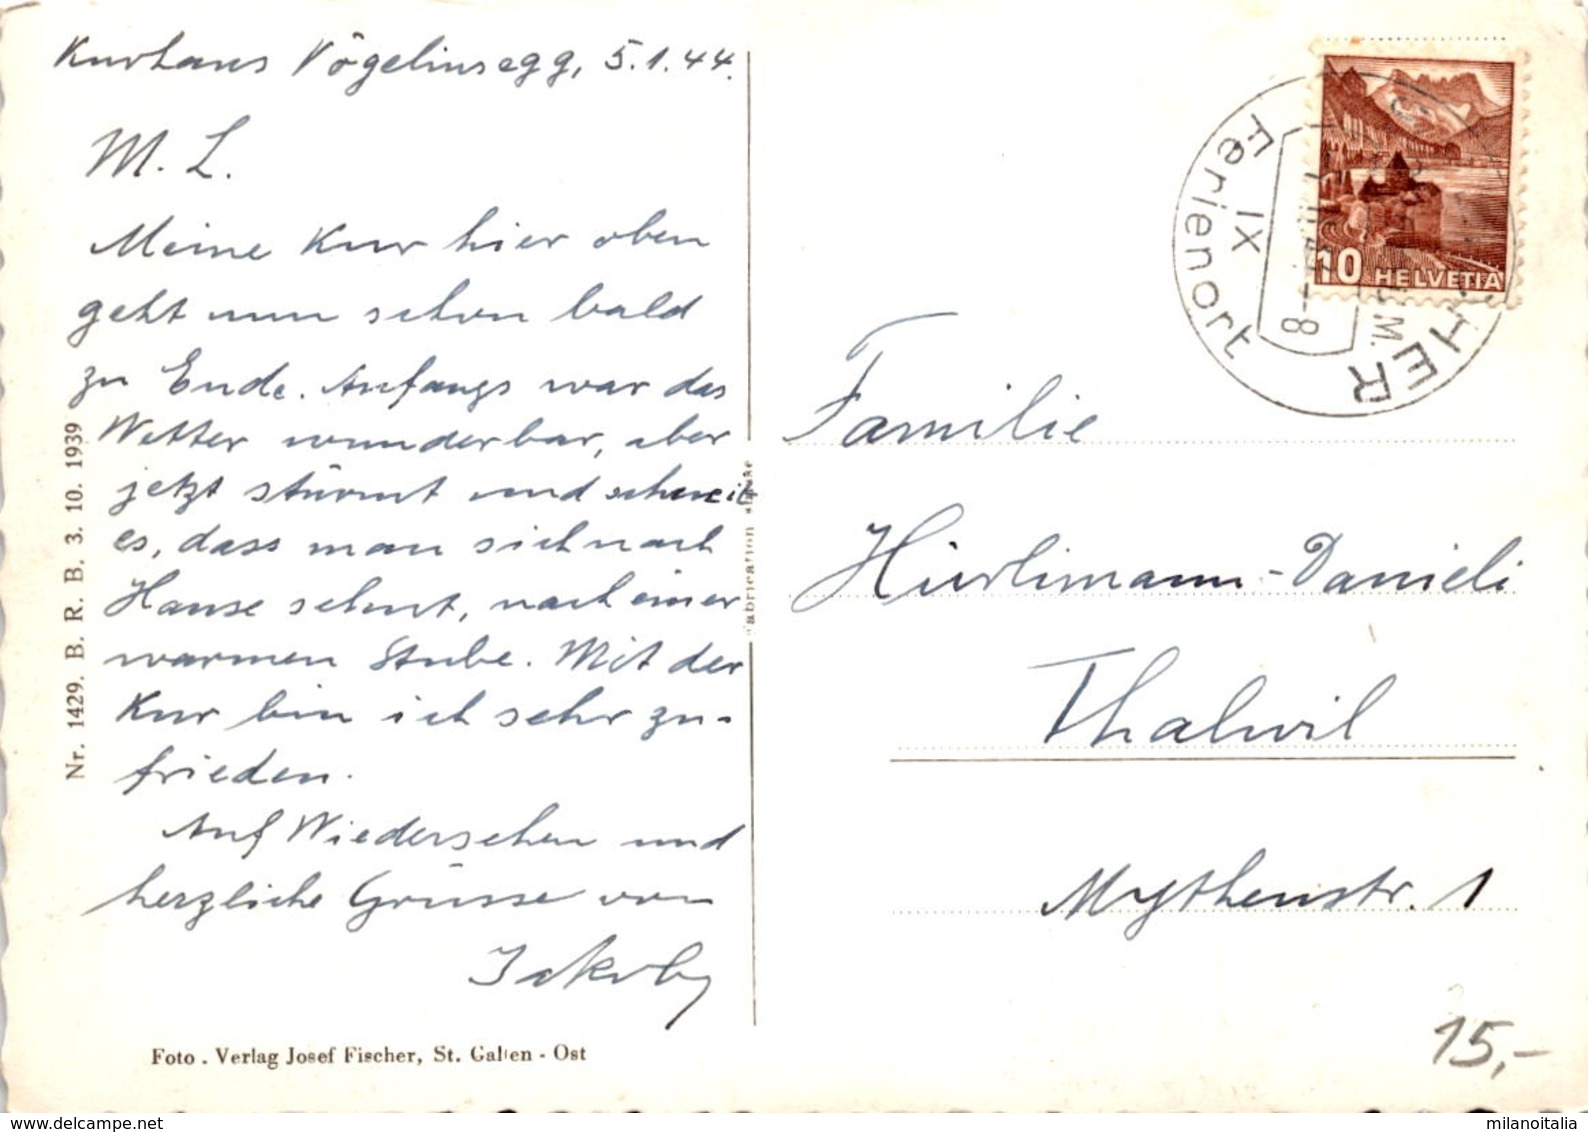 Kurhaus Vögelinsegg, 5.1.44.
M. L.
Meine Kur hier oben
geht nun schon bald
zu Ende. Anfangs war das
Wetter wunderbar, aber
jetzt stürmt und schneit
es, dass man sich nach
Hause sehnt, nach einer
warmen Stube. Mit der
Kur bin ich sehr zu-
frieden.
Auf Wiedersehen und
herzliche Grüsse von
Nr. 1429. B. R. B. 3. 10. 1939
Foto . Verlag Josef Fischer, St. Gallen - Ost
Fabrication suisse
Ferienort
IX
-8
10 HELVETIA
Familie
Hürlimann-Danieli
Thalwil
Mythenstr. 1
15,-
www.delcampe.net
milanoitalia